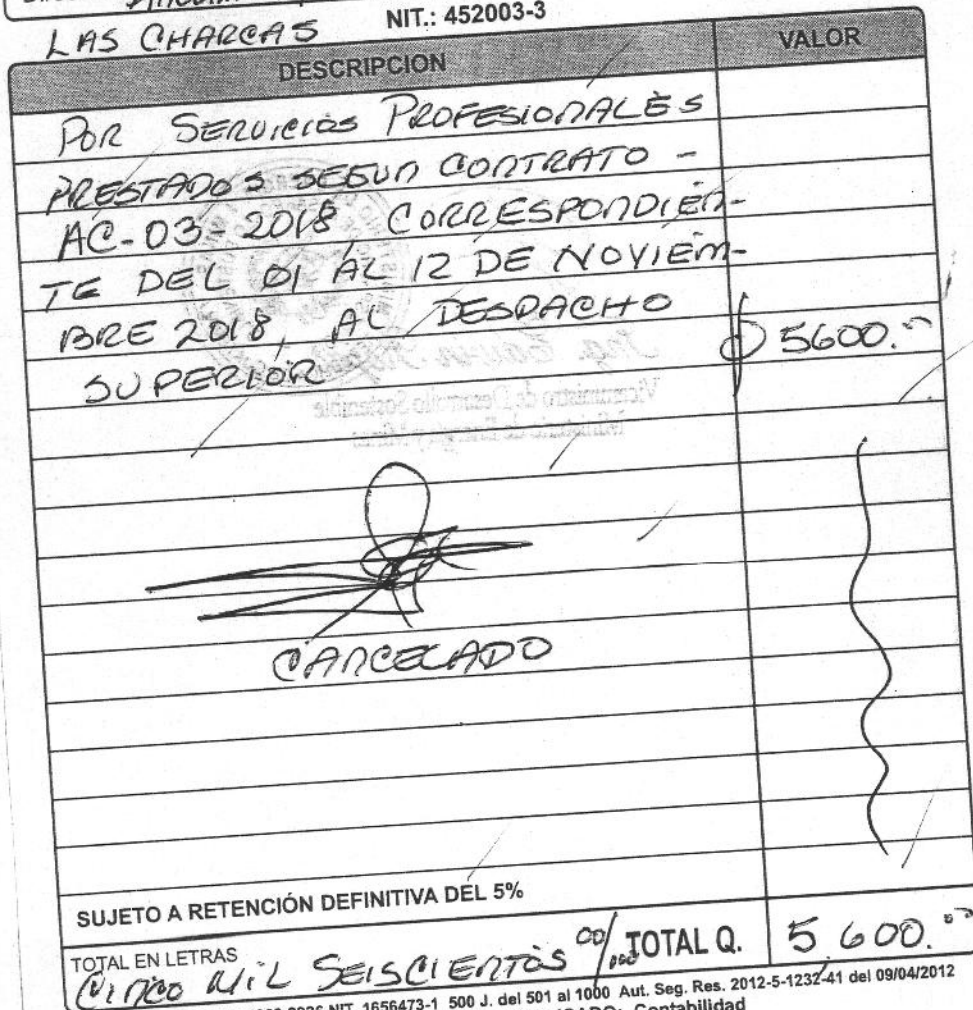 LAS CHARCAS NIT.: 452003-3
DESCRIPCION VALOR
POR SERVICIOS PROFESIONALES
PRESTADOS SEGUN CONTRATO -
AC-03-2018, CORRESPONDIEN-
TE DEL 01 AL 12 DE NOVIEM-
BRE 2018, AL DESPACHO
SUPERIOR Q 5600.00
Viceministro de Desarrollo Sostenible
Ministerio de Energía y Minas
CANCELADO
SUJETO A RETENCIÓN DEFINITIVA DEL 5%
TOTAL EN LETRAS
CINCO MIL SEISCIENTOS 00/100 TOTAL Q. 5600.00
NIT. 1656473-1 500 J. del 501 al 1000 Aut. Seg. Res. 2012-5-1232-41 del 09/04/2012
Contabilidad